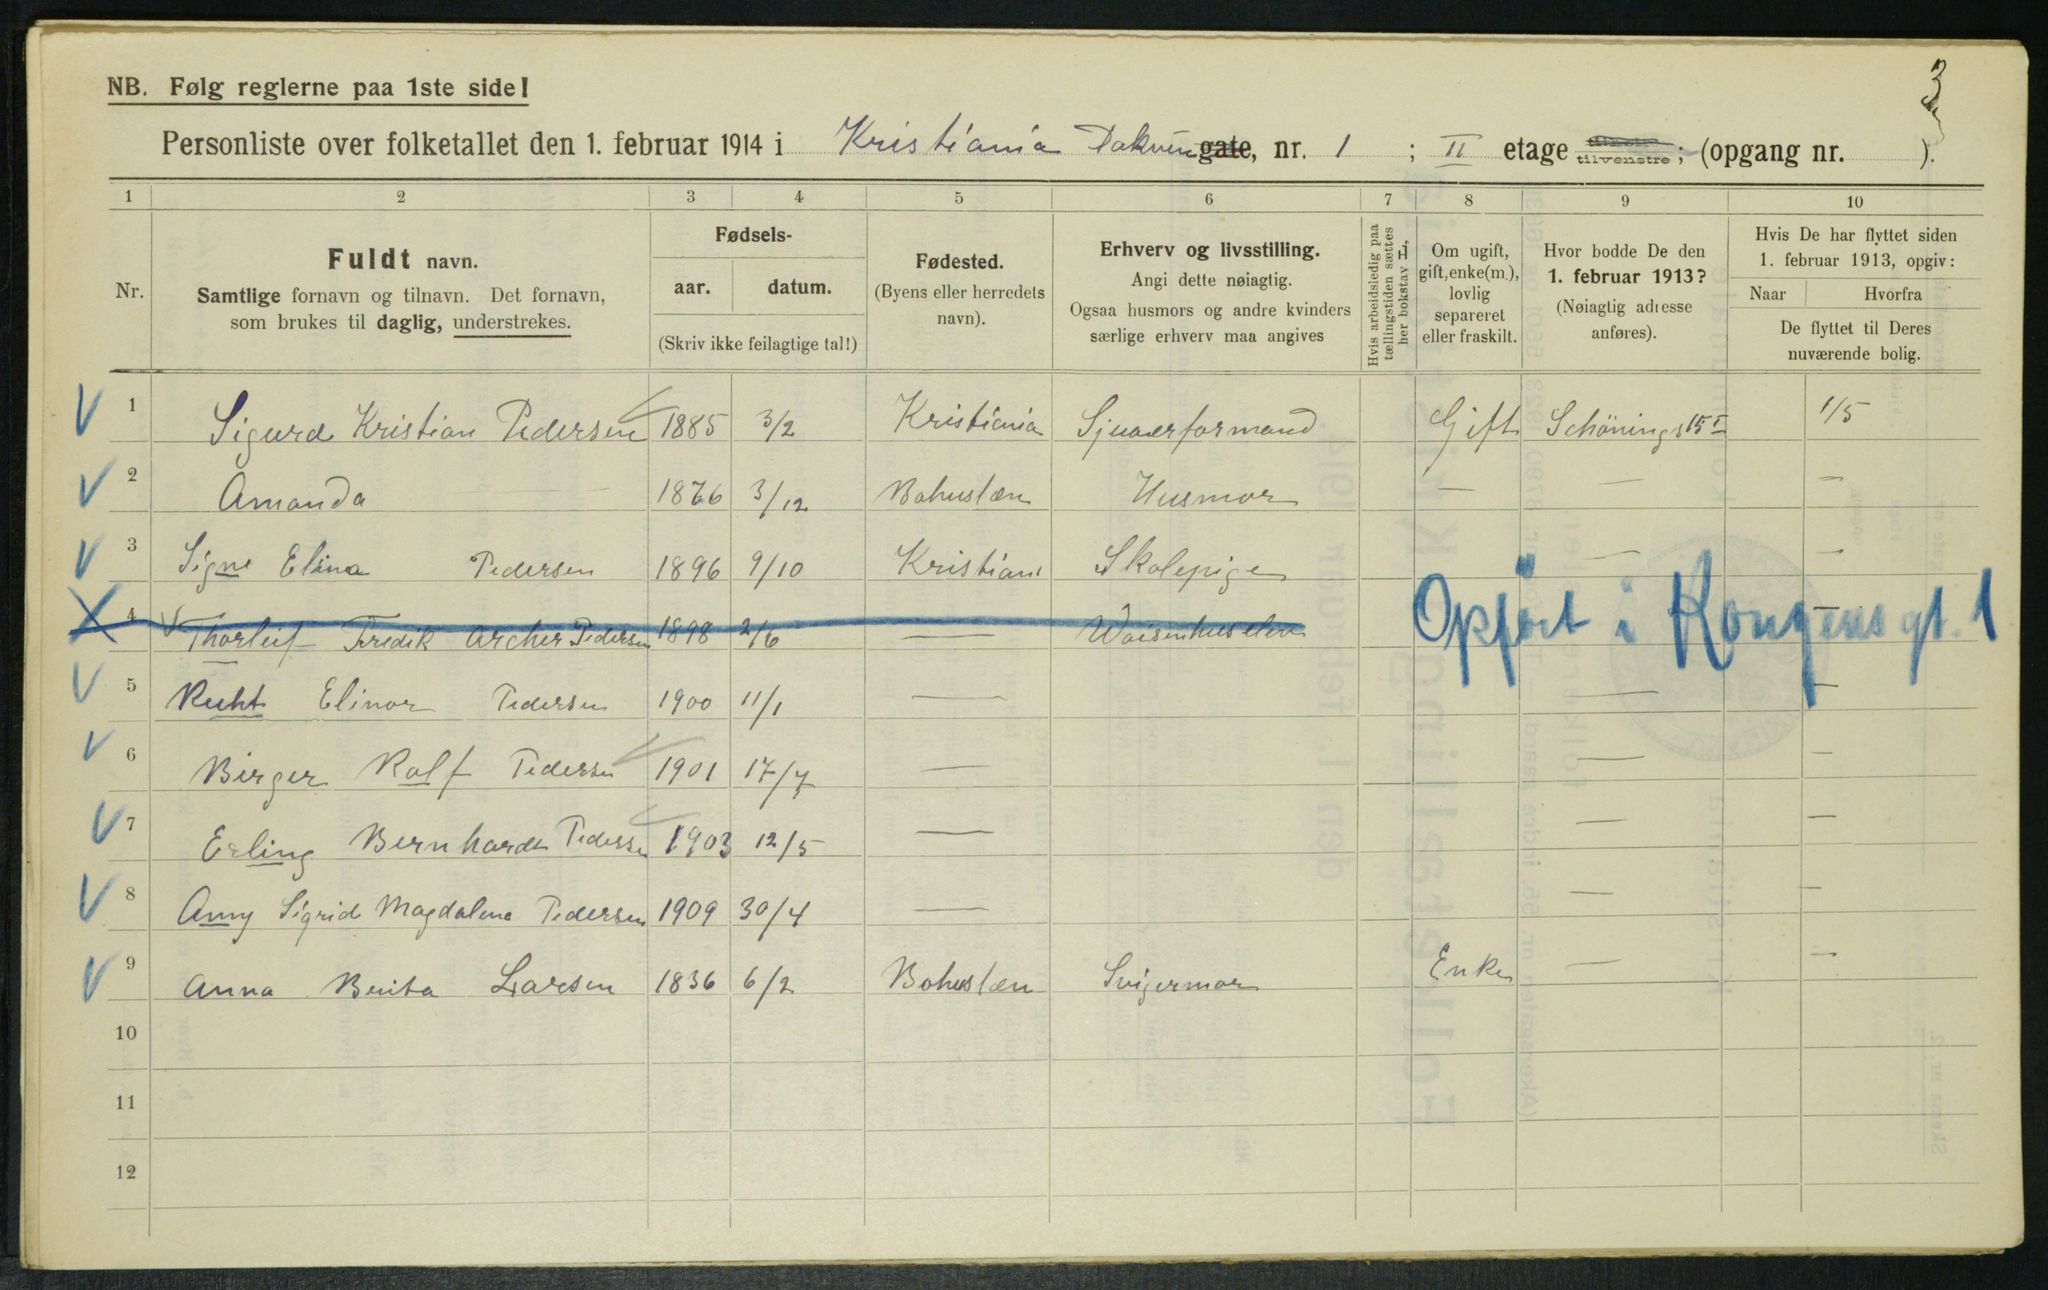 3
NB. Følg reglerne paa 1ste side!
Personliste over folketallet den 1. februar 1914 i Kristiania gate, nr. 1 ; II etage tilvenstre; (opgang nr. ).
1 2 3 4 5 6 7 8 9 10
Nr.
Fuldt navn.
Samtlige fornavn og tilnavn. Det fornavn,
som brukes til daglig, understrekes.
Fødsels-
aar. datum.
(Skriv ikke feilagtige tal!)
Fødested.
(Byens eller herredets
navn).
Erhverv og livsstilling.
Angi dette nøiagtig.
Ogsaa husmors og andre kvinders
særlige erhverv maa angives
Hvis arbeidsledig paa
tællingstiden sættes
her bokstav L.
Om ugift,
gift, enke(m.),
lovlig
separeret
eller fraskilt.
Hvor bodde De den
1. februar 1913?
(Nøiagtig adresse
anføres).
Hvis De har flyttet siden
1. februar 1913, opgiv:
Naar Hvorfra
De flyttet til Deres
nuværende bolig.
1 Sigurd Kristian Pedersen 1885 3/2 Kristiania Sjauerformand Gift Schønings 15 I 1/5
2 Amanda — 1876 3/12 Bohuslæn Husmor — — —
3 Signe Elina Pedersen 1896 9/10 Kristiani Skolepige — —
4 Thorleif Fredik Archer Pedersen 1898 2/6 — Waisenhuselev Opført i Kongens gt. 1
5 Ruht Elinor Pedersen 1900 11/1 — — —
6 Birger Rolf Pedersen 1901 17/7 — — —
7 Erling Bernhardt Pedersen 1903 12/5 — — —
8 Anny Sigrid Magdalene Pedersen 1909 30/4 — — —
9 Anna Brita Larsen 1836 6/2 Bohuslæn Svigermor Enke — —
10
11
12